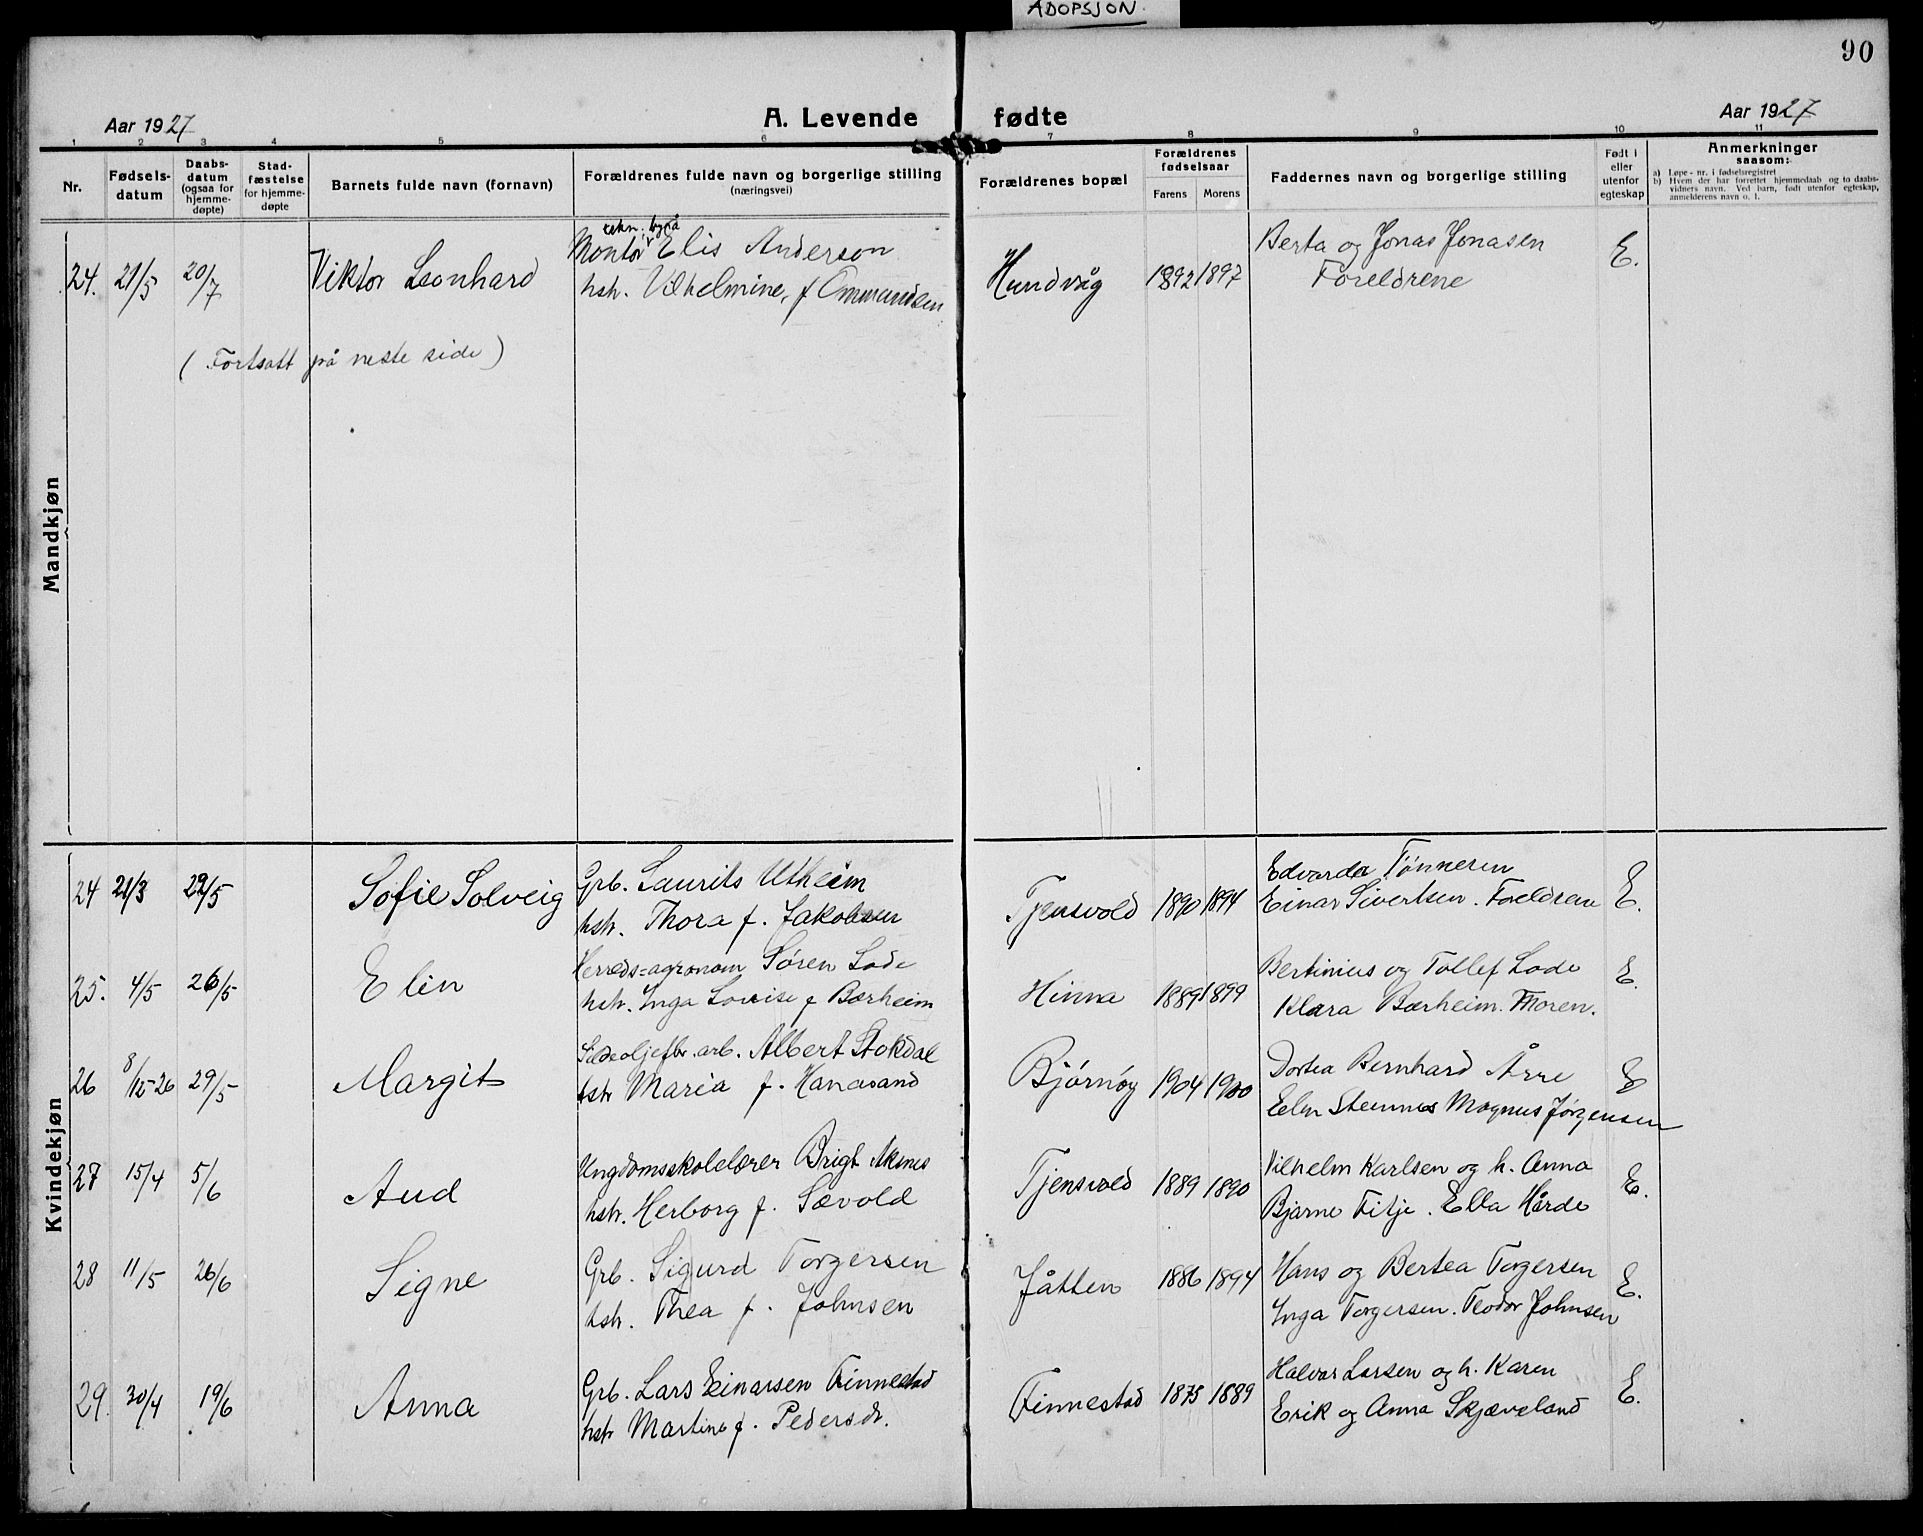 ADOPSJON.
90
Aar 1927
A. Levende fødte
Aar 1927
1 2 3 4 5 6 7 8 9 10 11
Nr.
Fødsels-
datum
Daabs-
datum
(ogsaa for
hjemme-
døpte)
Stad-
fæstelse
for hjemme-
døpte
Barnets fulde navn (fornavn)
Forældrenes fulde navn og borgerlige stilling
(næringsvei)
Forældrenes bopæl
Forældrenes
fødselsaar
Farens Morens
Faddernes navn og borgerlige stilling
Født i
eller
utenfor
egteskap
Anmerkninger
saasom:
a) Løpe-nr. i fødselsregistret
b) Hvem der har forrettet hjemmedaab og to daabs-
vidners navn. Ved barn, født utenfor egteskap,
anmelderens navn o. l.
Mandkjøn
24. 21/5 20/7 Viktor Leonhard
tekn. byrå
Montør Elis Anderson
hstr. Vilhelmine, f Ommundsen
Hundvåg 1892 1897
Berta og Jonas Jonasen
Foreldrene
E.
(Fortsatt på neste side)
Kvindekjøn
24 21/3 22/5 Sofie Solveig
Grb. Laurits Utheim
hstr. Thora f. Jakobsen
Tjensvold 1890 1894
Edvarda Tønnesen
Einar Sivertsen. Foreldrene
E.
25. 4/5 26/5 Elin
Herreds=agronom Søren Lode
hstr. Inga Lovise f Bærheim
Hinna 1889 1899
Bertinius og Tollef Lode
Klara Bærheim. Moren.
E.
26 8/12-26 29/5 Margit
Sildeoljefbr. arb. Albert Stokdal
hstr Maria f. Hanasand
Bjørnøy 1904 1900
Dortea Bernhard Årre
Elen Stemnes Magnus Jørgensen
E
27 15/4 5/6 Aud
Ungdomsskolelærer Brigt Aknes
hstr. Herborg f. Sævold
Tjensvold 1889 1890
Vilhelm Karlsen og h. Anna
Bjarne Fitje. Ella Hårde
E.
28 11/5 26/6 Signe
Grb. Sigurd Torgersen
hstr. Thea f. Johnsen
Jåtten 1886 1894
Hans og Bertea Torgersen
Inga Torgersen. Teodor Johnsen
E.
29. 30/4 19/6 Anna
Grb. Lars Einarsen Finnestad
hstr Martine f. Pedersdr.
Finnestad 1875 1889
Halvor Larsen og h. Karen
Erik og Anna Skjæveland
E.